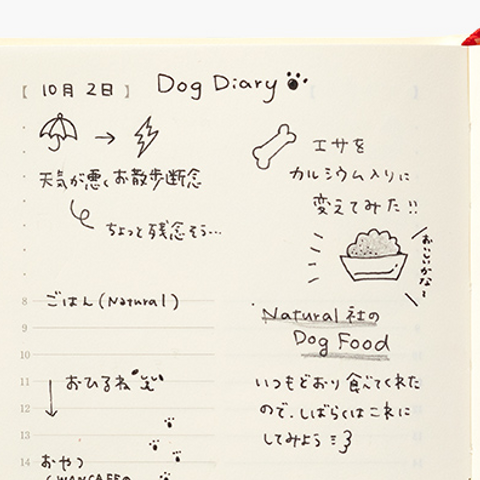 [ 10月 2日 ] Dog Diary
→
天気が悪くお散歩断念
ちょっと残念そう...
8 ごはん (Natural)
9
10
11 おひるね
12
13
14 おやつ
(WANCAFEの
エサを
カルシウム入りに
変えてみた!!
おいしいかな〜
Natural 社の
Dog Food
いつもどおり食べてくれた
ので、しばらくはこれに
してみよう